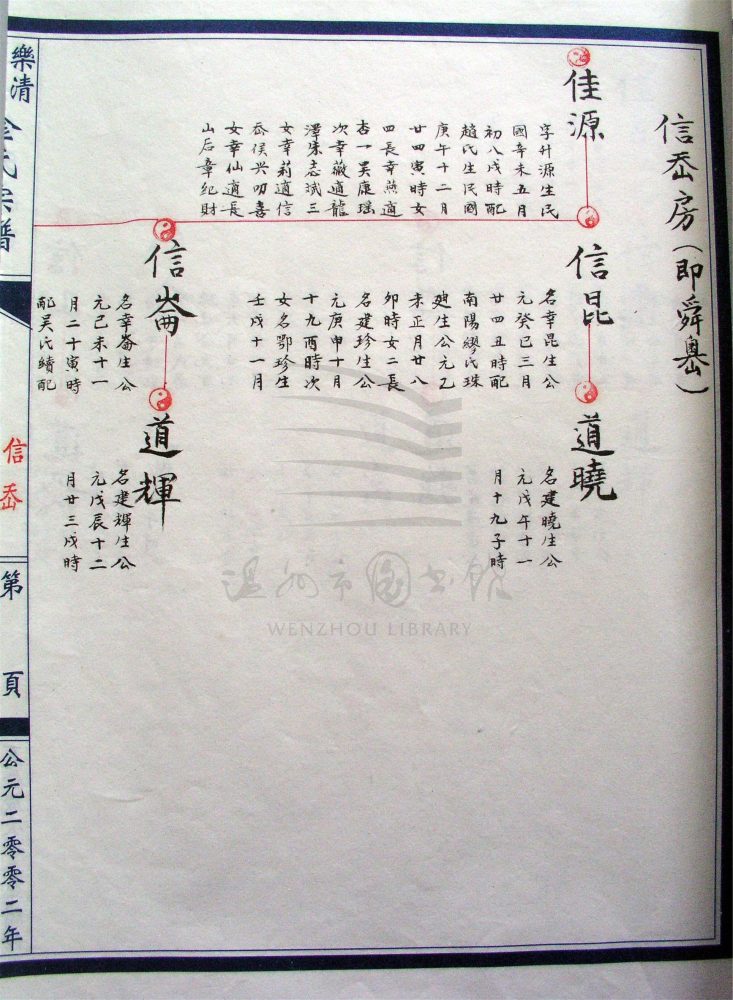 信岙房(即舜岙)
佳源
字升源生民
國辛未五月
初八戌時配
趙氏生民國
庚午十二月
廿四寅時女
四長幸燕適
杏一吴康瑶
次幸薇適龍
澤朱志斌三
女幸莉適信
岙侯兴叨喜
女幸仙適長
山后章纪財
信昆
名幸昆生公
元癸巳三月
廿四丑時配
南陽繆氏珠
生公元乙
未正月廿八
卯時女二長
名建珍生公
元庚申十月
十九酉時次
女名鄂珍生
壬戌十一月
道曉
名建曉生公
元戊午十一
月十九子時
信崙
名幸崙生公
元己未十一
月二十寅時
配吴氏續配
道輝
名建輝生公
元戊辰十二
月廿三戌時
樂清 氏宗譜
信岙
第 頁
公元二零零二年
温州市图书馆
WENZHOU LIBRARY